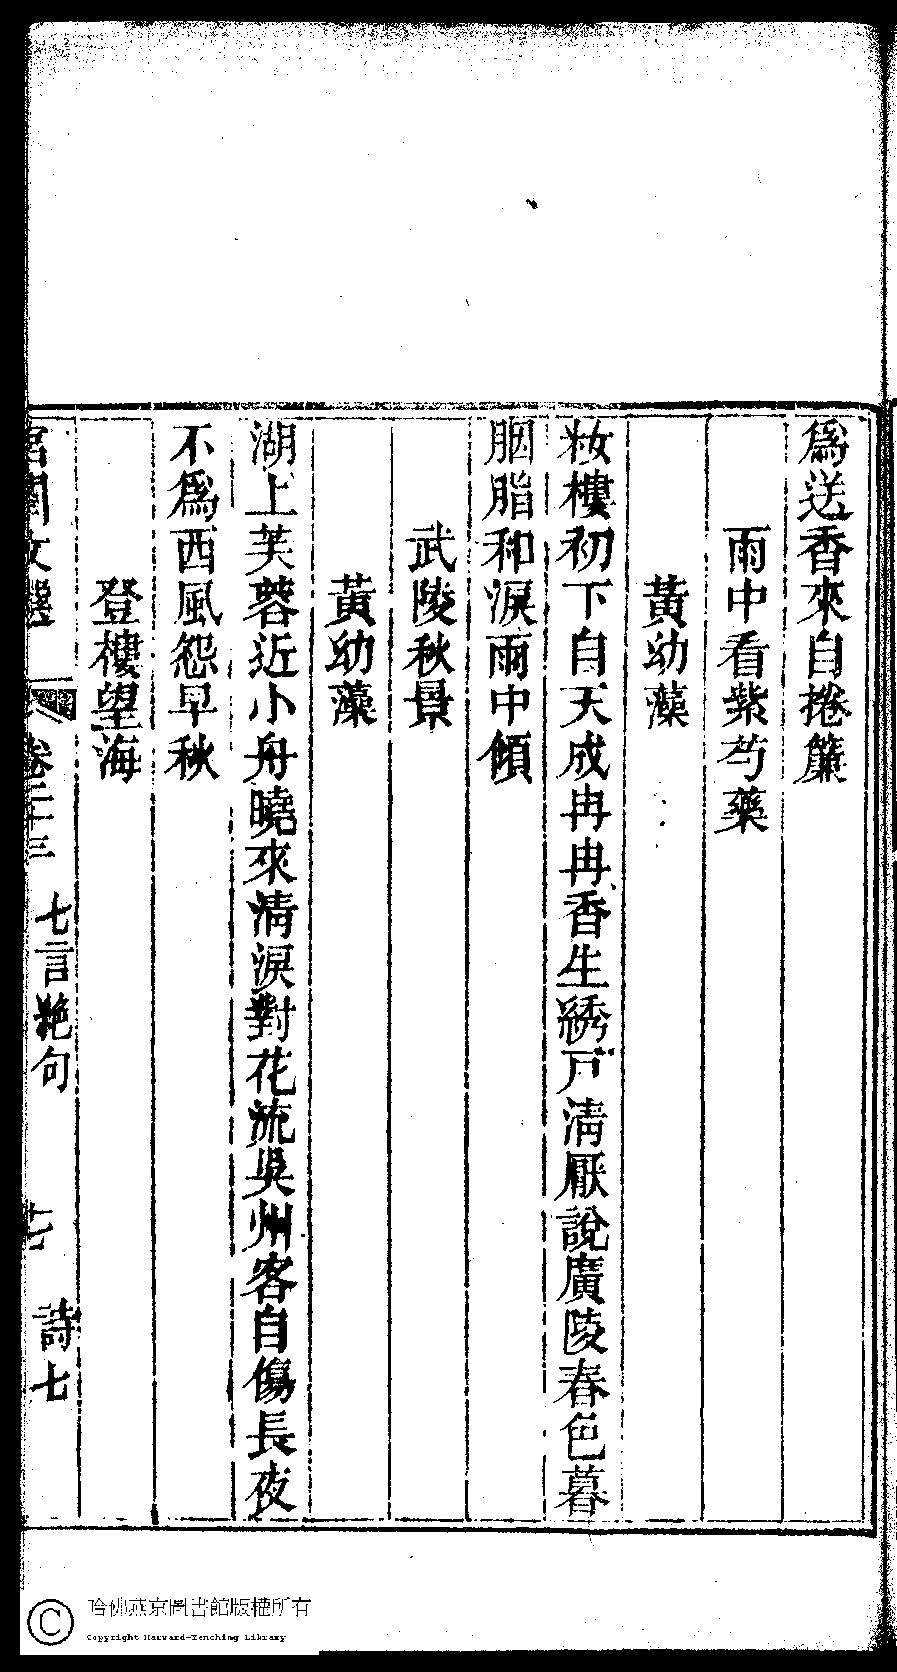 爲送香來自捲簾
雨中看紫芍藥
黃幼藻
妝樓初下自天成冉冉香生綉戸淸厭說廣陵春色暮
胭脂和淚雨中傾
武陵秋景
黃幼藻
湖上芙蓉近小舟曉來淸淚對花流吳州客自傷長夜
不爲西風怨早秋
登樓望海
宮閨文選 卷二十三 七言艳句 七 詩七
哈佛燕京圖書館版權所有
Copyright Harvard-Yenching Library